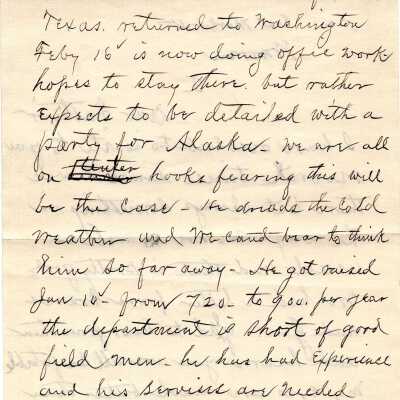 Texas. returned to Washington
Feby 16" is now doing office work
hopes to stay there. but rather
expects to be detailed with a
party for Alaska - we are all
on hooks fearing this will
be the case - He dreads the Cold
weather and we cand bear to think
him so far away - He got raised
Jan 10" - from 720 - to 900. per year
the department is short of good
field men - he has had Experience
and his servises are needed